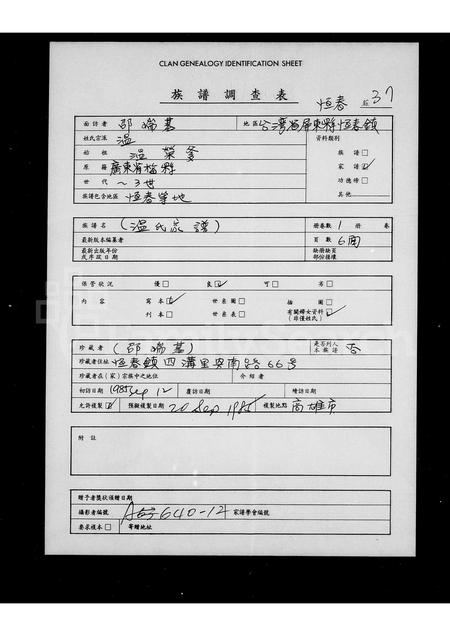 CLAN GENEALOGY IDENTIFICATION SHEET
族譜調查表
恆春 37
面訪者 邵瑞基 地區 台灣省屏東縣恆春鎮
姓氏宗派 溫 資料類別
始祖 溫榮爹 族譜□
原籍 廣東省 縣 家譜☑
世代 ～3世 功德榜□
族譜包含地區 恆春等地 其他
族譜名 (溫氏家譜) 冊卷數 1 冊 卷
最新版本編纂者 頁數 6面
最新出版年份或序跋日期 缺冊缺頁部份種壞
保管狀況 優□ 良☑ 可□ 劣□
內容 寫本☑ 世系圖□ 插圖□
刊本□ 世系表□ 有關婦女資料☑(非僅姓氏)
珍藏者 (邵瑞基) 是否列入本族譜 否
珍藏者住址 恆春鎮四溝里安南路66号
珍藏者在(家)宗族中之地位 介紹者
初訪日期 1985 Sep 12 覆訪日期 續訪日期
允許複製☑ 預擬複製日期 20 Sep 1985 複製地點 高雄市
附註
贈予者獎狀頒贈日期
攝影者編號 640-12 家譜學會編號
要求複本□ 寄贈地址